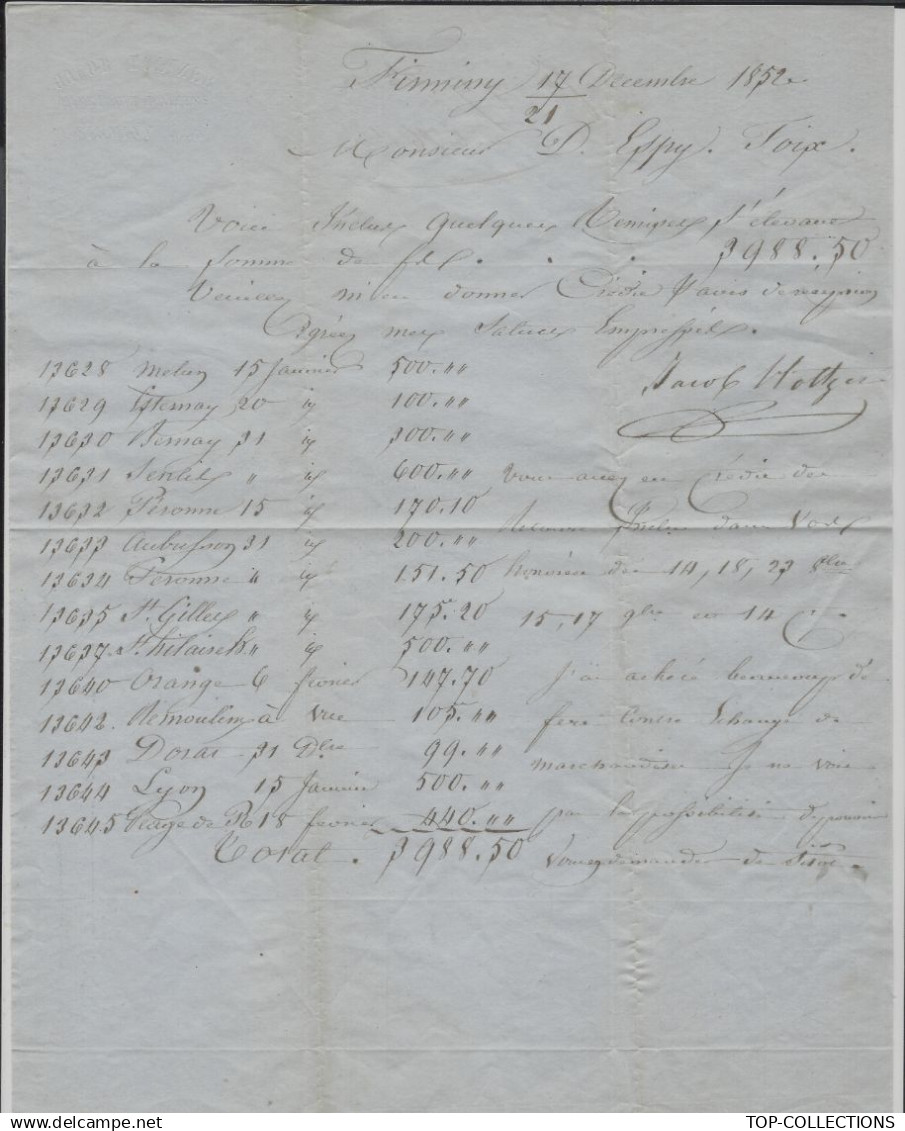 Firminy 17 Decembre 1852
21
Monsieur D. Espy. Foix.
Voici Inclus quelques Remises s'élevant
à la somme de f . . . 3988.50
Veuillez m'en donner Crédit
Agréez mes Saluts Empressés.
Jacob Holtzer
13628 Melun 15 Janvier 500."
13629 Epernay 20 id 100."
13630 Bernay 31 id 300."
13631 Senlis " id 600."
13632 Peronne 15 id 170.10
13633 Aubusson 31 id 200."
13634 Peronne " id 151.50
13635 St. Gilles " id 175.20
13637 St. hilaire " id 500."
13640 Orange 6 fevrier 147.70
13642. Remoulins à vue 105."
13643 Dorat 31 Dbre 99."
13644 Lyon 15 Janvier 500."
13645 Péage de R 18 fevrier 440."
Total. 3988.50
vous avez en Crédit des
Remises Inclus dans vos
honorées des 14, 18, 23 8bre
15, 17 9bre et 14 ct
J'ai acheté beaucoup de
fers contre Echange de
marchandises Je ne vois
pas la possibilité de pouvoir
vous demander de
TOP-COLLECTIONS